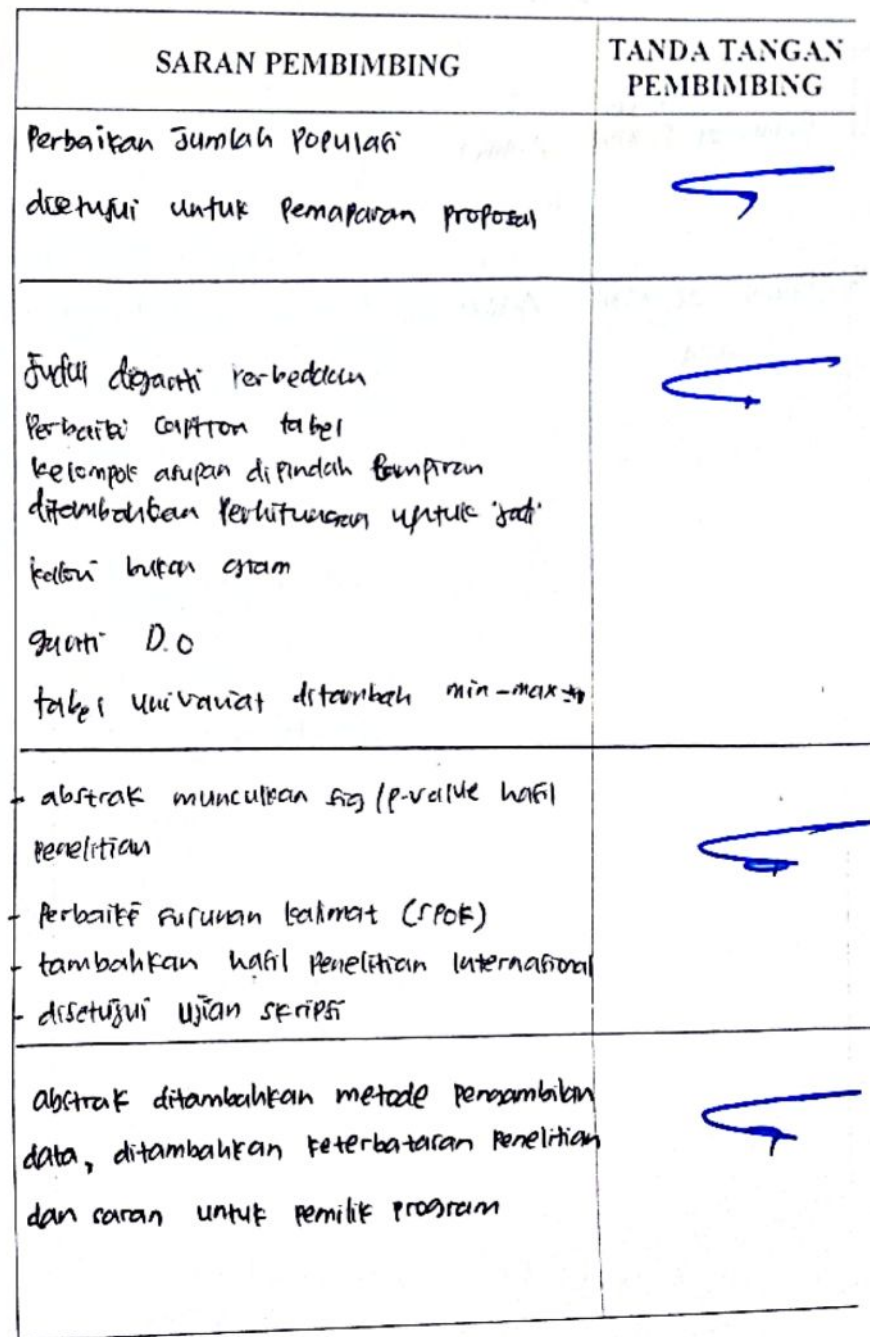 SARAN PEMBIMBING
TANDA TANGAN
PEMBIMBING
Perbaikan Jumlah Populasi
disetujui untuk Pemaparan proposal
Judul diganti Perbedaan
Perbaiki caption tabel
kelompok asupan dipindah lampiran
ditambahkan Perhitungan untuk jadi
kalori bukan gram
ganti D.O
tabel univariat ditambah min-max
- abstrak munculkan sig/p-value hasil
penelitian
- Perbaiki susunan kalimat (SPOK)
- tambahkan hasil Penelitian Internasional
- disetujui Ujian skripsi
abstrak ditambahkan metode pengambilan
data, ditambahkan keterbatasan Penelitian
dan saran untuk pemilik program